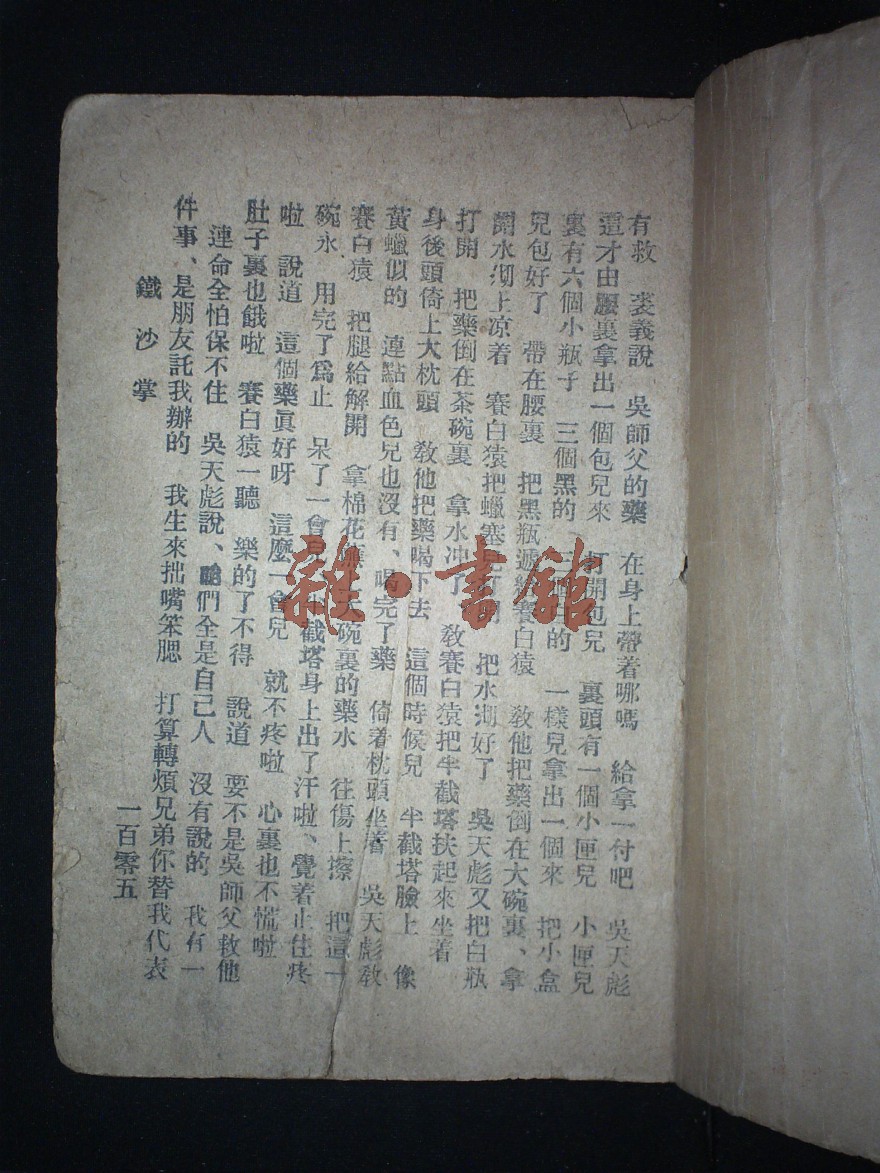 有救　裘義說　吳師父的藥　在身上帶着哪嗎　給拿一付吧　吳天彪
這才由腰裏拿出一個包兒來　打開包兒　裏頭有一個小匣兒　小匣兒
裏有六個小瓶子　三個黑的　三個白的　一樣兒拿出一個來　把小盒
兒包好了　帶在腰裏　把黑瓶遞給賽白猿　教他把藥倒在大碗裏、拿
開水沏上凉着　賽白猿把蠟塞兒打開　把水沏好了　吳天彪又把白瓶
打開　把藥倒在茶碗裏、拿水冲了　教賽白猿把半截塔扶起來坐着
身後頭倚上大枕頭　教他把藥喝下去　這個時候兒　半截塔臉上　像
黃蠟似的　連點血色兒也沒有、喝完了藥　倚着枕頭坐着　吳天彪教
賽白猿　把腿給解開　拿棉花蘸大碗裏的藥水　往傷上擦　把這一
碗水　用完了爲止　呆了一會兒　半截塔身上出了汗啦、覺着止住疼
啦　說道　這個藥眞好呀　這麼一會兒　就不疼啦　心裏也不慌啦
肚子裏也餓啦　賽白猿一聽　樂的了不得　說道　要不是吳師父救他
連命全怕保不住　吳天彪說、咱們全是自己人　沒有說的　我有一
件事、是朋友託我辦的　我生來拙嘴笨腮　打算轉煩兄弟你替我代表
鐵沙掌
一百零五
雜·書館